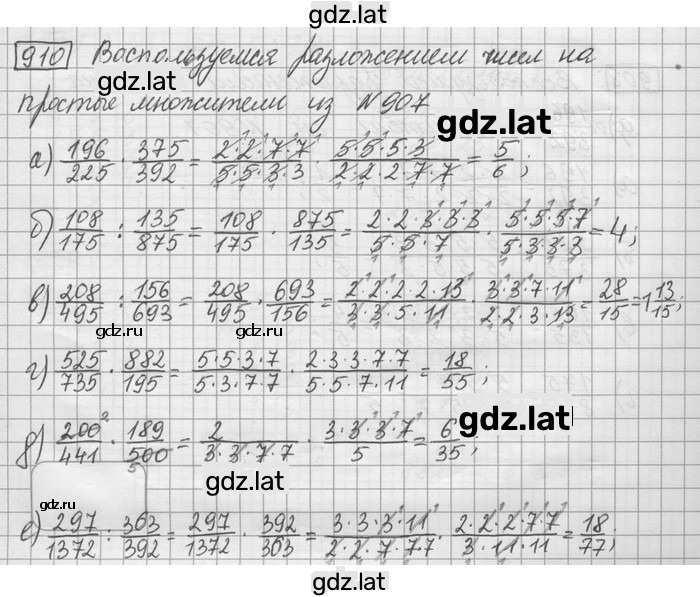 gdz.lat
910 Воспользуемся разложением чисел на
gdz.lat
простые множители из №907
gdz.lat
а) 196/225 · 375/392 = 2·2·7·7/5·5·3·3 · 5·5·5·3/2·2·2·7·7 = 5/6;
б) 108/175 : 135/875 = 108/175 · 875/135 = 2·2·3·3·3/5·5·7 · 5·5·5·7/5·3·3·3 = 4;
в) 208/495 : 156/693 = 208/495 · 693/156 = 2·2·2·2·13/3·3·5·11 · 3·3·7·11/2·2·3·13 = 28/15 = 1 13/15;
gdz.ru gdz.ru
г) 525/735 · 882/195 = 5·5·3·7/5·3·7·7 · 2·3·3·7·7/5·5·7·11 = 18/55;
gdz.lat
д) 200²/441 · 189/500 5 = 2/3·3·7·7 · 3·3·3·7/5 = 6/35;
gdz.lat
gdz.ru gdz.ru
е) 297/1372 : 363/392 = 297/1372 · 392/363 = 3·3·3·11/2·2·7·7·7 · 2·2·2·7·7/3·11·11 = 18/77;
gdz.lat